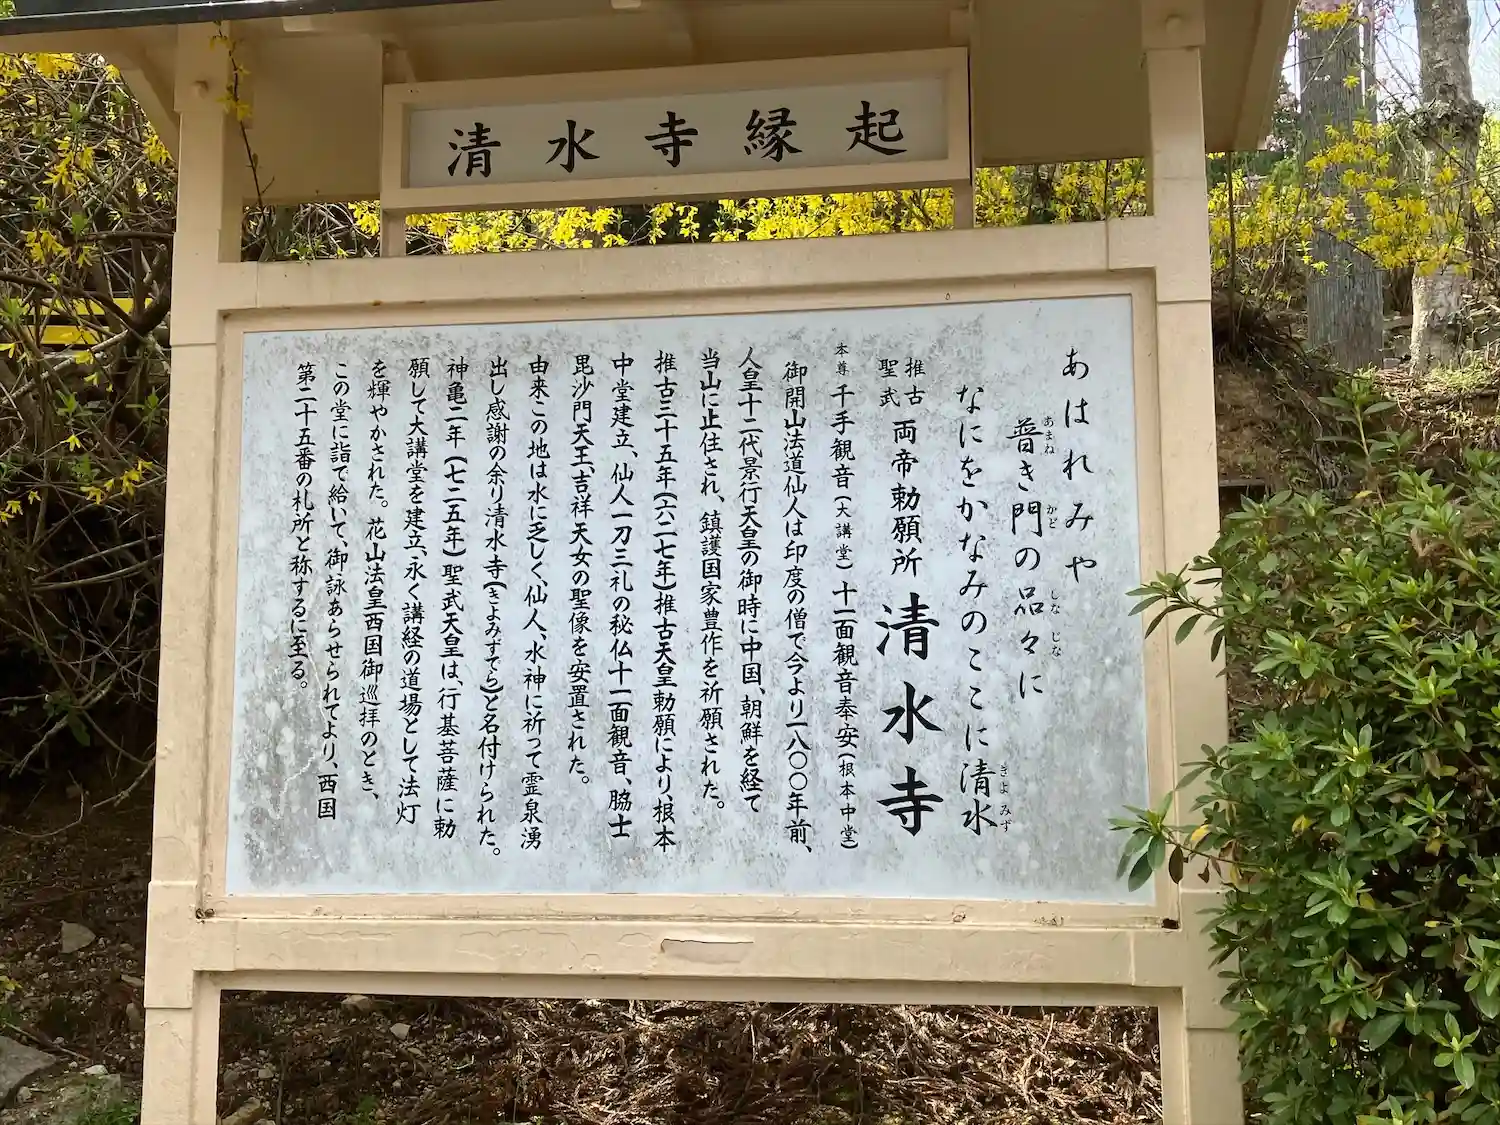 清水寺縁起
あはれみや
普き門の品々に
あまね
かど
しな じな
なにをかなみのここに清水
きよみず
推古
聖武
両帝勅願所 清水寺
本尊 千手観音(大講堂)十一面観音奉安(根本中堂)
御開山法道仙人は印度の僧で今より一八〇〇年前、
人皇十二代景行天皇の御時に中国、朝鮮を経て
当山に止住され、鎮護国家豊作を祈願された。
推古三十五年(六二七年)推古天皇勅願により、根本
中堂建立、仙人一刀三礼の秘仏十一面観音、脇士
毘沙門天王、吉祥天女の聖像を安置された。
由来この地は水に乏しく、仙人、水神に祈って霊泉湧
出し感謝の余り清水寺(きよみずでら)と名付けられた。
神亀二年(七二五年)聖武天皇は、行基菩薩に勅
願して大講堂を建立、永く講経の道場として法灯
を輝やかされた。花山法皇西国御巡拝のとき、
この堂に詣で給いて、御詠あらせられてより、西国
第二十五番の札所と称するに至る。